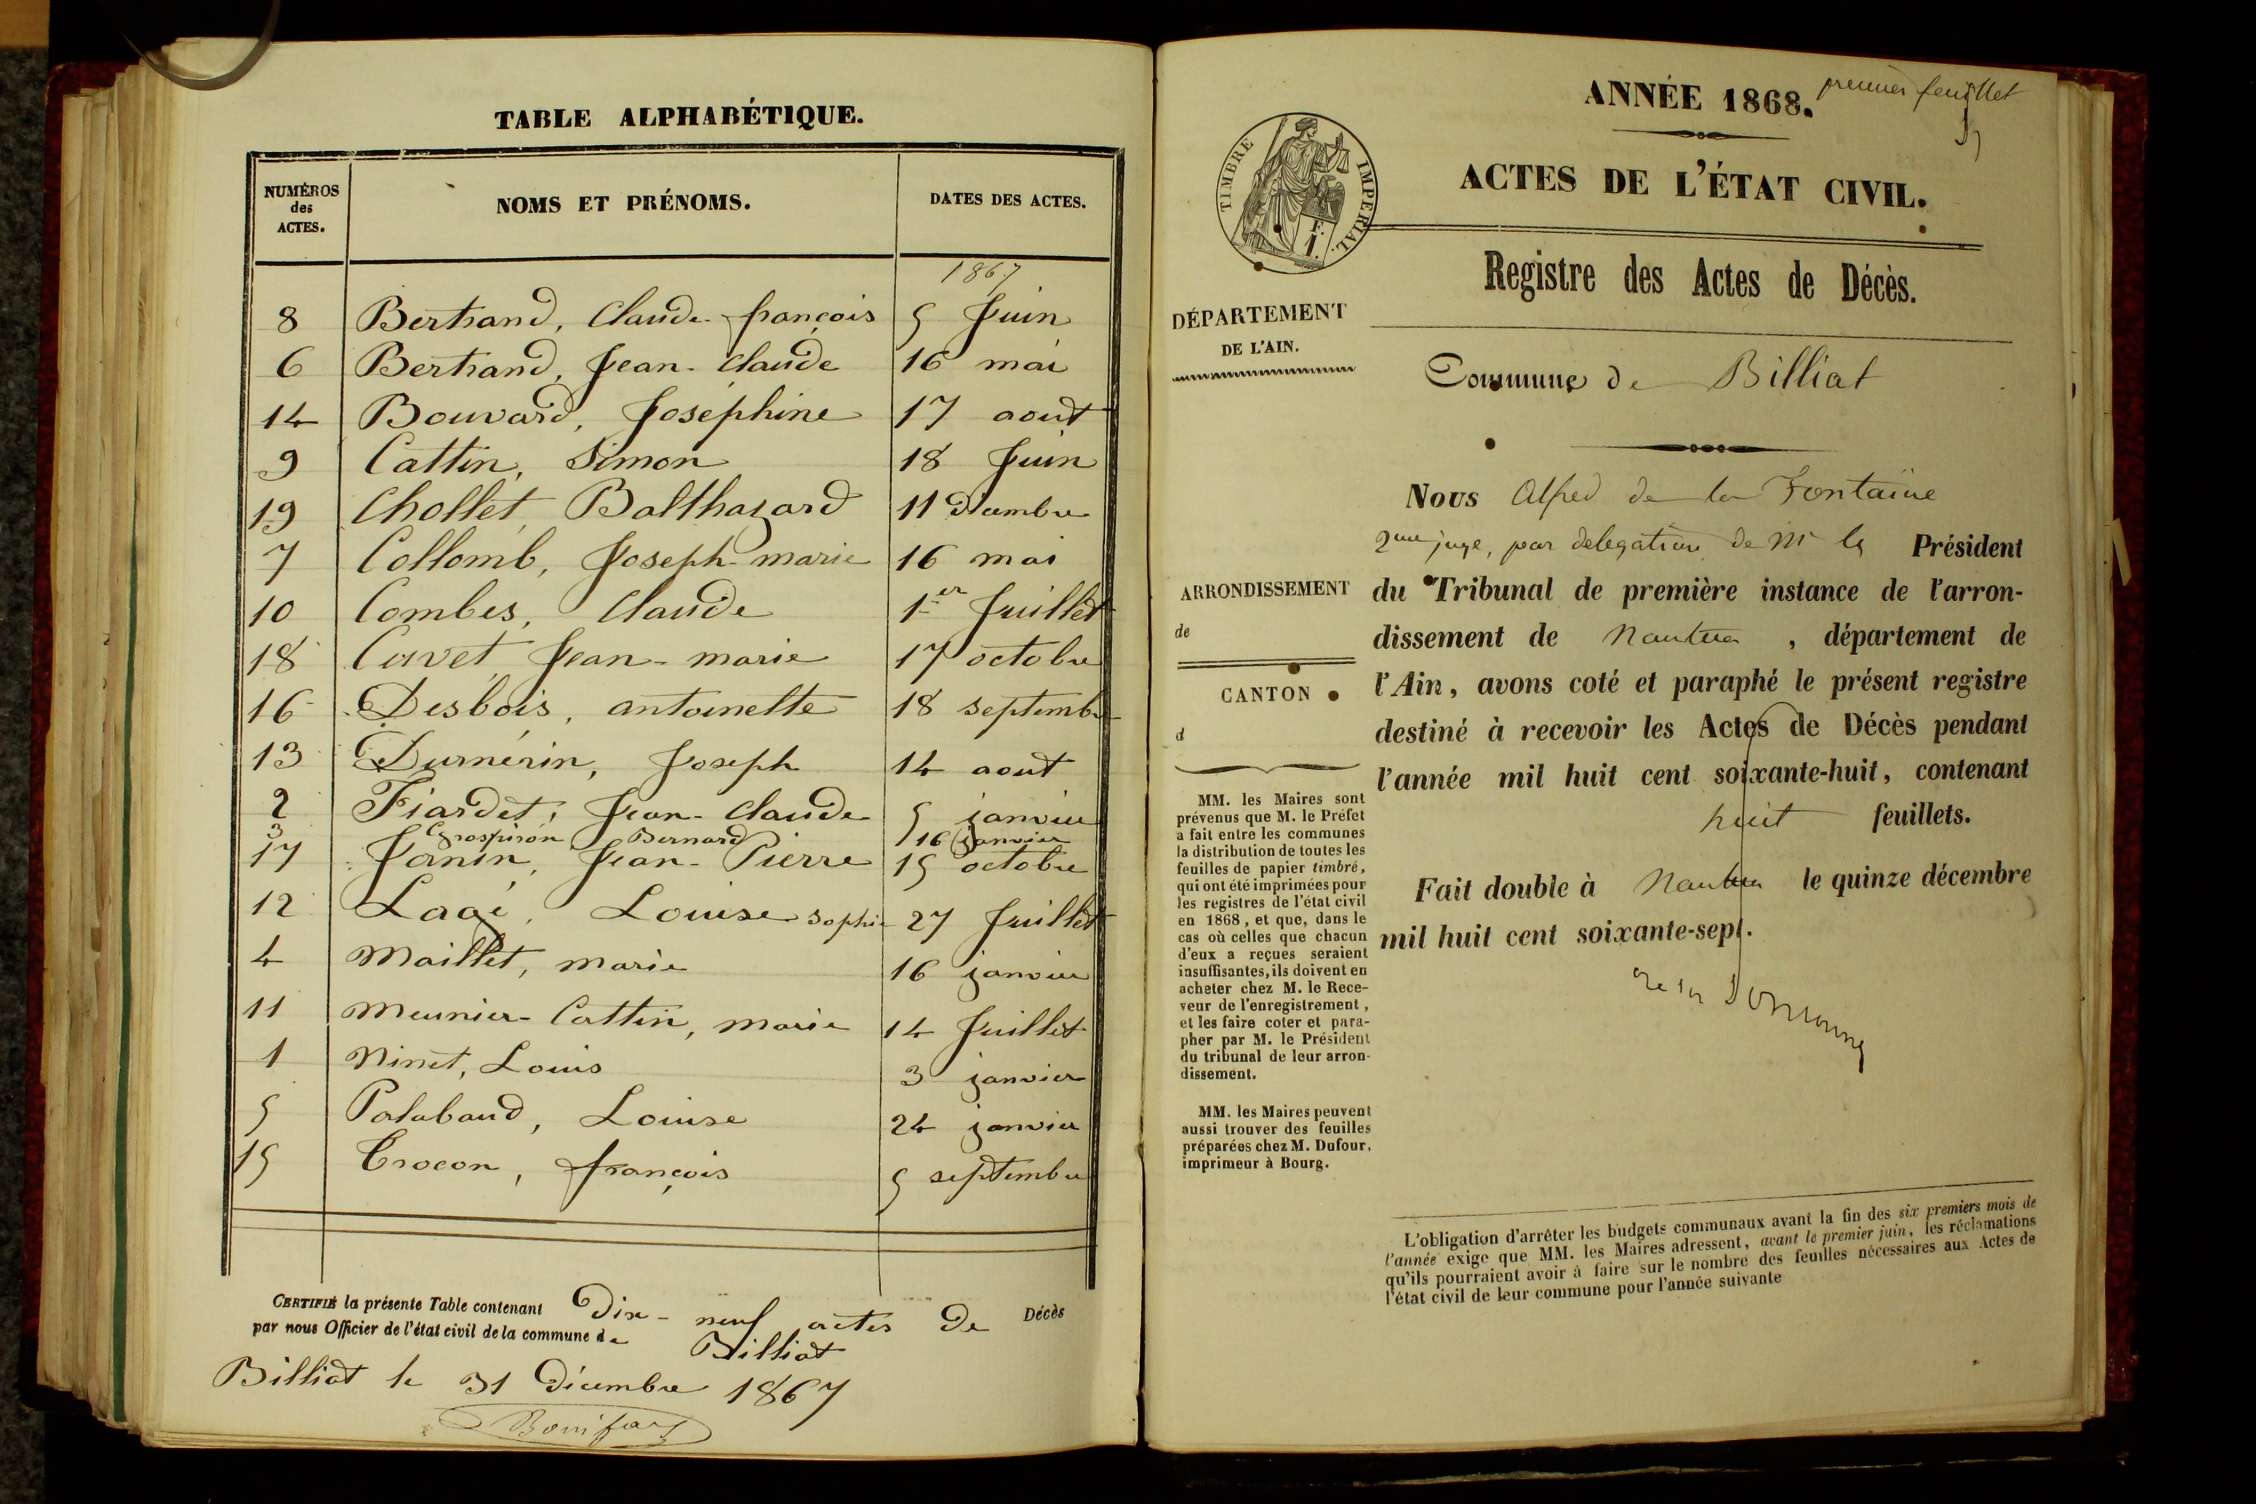 TABLE ALPHABÉTIQUE.
NUMÉROS des ACTES. NOMS ET PRÉNOMS. DATES DES ACTES.
1867
8 Bertrand, Claude-françois 5 Juin
6 Bertrand, Jean-Claude 16 mai
14 Bouvard, Joséphine 17 aout
9 Cattin, Simon 18 Juin
19 Chollet, Balthazard 11 Décembre
7 Collomb, Joseph-marie 16 mai
10 Combes, Claude 1er Juillet
18 Cuvet, Jean-marie 17 octobre
16 Desbois, antoinette 18 septembre
13 Dumérin, Joseph 14 aout
2 Fiardet, Jean-Claude 5 janvier
3 Grospiron Bernard 16 Janvier
17 Janin, Jean-Pierre 15 octobre
12 Lagé, Louise Sophie 27 Juillet
4 Maillet, marie 16 janvier
11 Meunier-Cattin, marie 14 Juillet
1 Ninet, Louis 3 janvier
5 Palabaud, Louise 24 janvier
15 Crocon, françois 5 septembre
CERTIFIÉ la présente Table contenant Dix-neuf actes de Décès
par nous Officier de l'état civil de la commune de Billiat
Billiat le 31 Décembre 1867
premier feuillet
ANNÉE 1868.
TIMBRE IMPERIAL.
F.
1.
ACTES DE L'ÉTAT CIVIL.
Registre des Actes de Décès.
DÉPARTEMENT
DE L'AIN.
Commune de Billiat
ARRONDISSEMENT
de
CANTON
d
Nous Alfred de la Fontaine
2me juge, par delegation de Mr le Président
du Tribunal de première instance de l'arron-
dissement de Nantua, département de
l'Ain, avons coté et paraphé le présent registre
destiné à recevoir les Actes de Décès pendant
l'année mil huit cent soixante-huit, contenant
huit feuillets.
Fait double à Nantua le quinze décembre
mil huit cent soixante-sept.
MM. les Maires sont
prévenus que M. le Préfet
a fait entre les communes
la distribution de toutes les
feuilles de papier timbré,
qui ont été imprimées pour
les registres de l'état civil
en 1868, et que, dans le
cas où celles que chacun
d'eux a reçues seraient
insuffisantes, ils doivent en
acheter chez M. le Rece-
veur de l'enregistrement,
et les faire coter et para-
pher par M. le Président
du tribunal de leur arron-
dissement.
MM. les Maires peuvent
aussi trouver des feuilles
préparées chez M. Dufour,
imprimeur à Bourg.
L'obligation d'arrêter les budgets communaux avant la fin des six premiers mois de
l'année exige que MM. les Maires adressent, avant le premier juin, les réclamations
qu'ils pourraient avoir à faire sur le nombre des feuilles nécessaires aux Actes de
l'état civil de leur commune pour l'année suivante